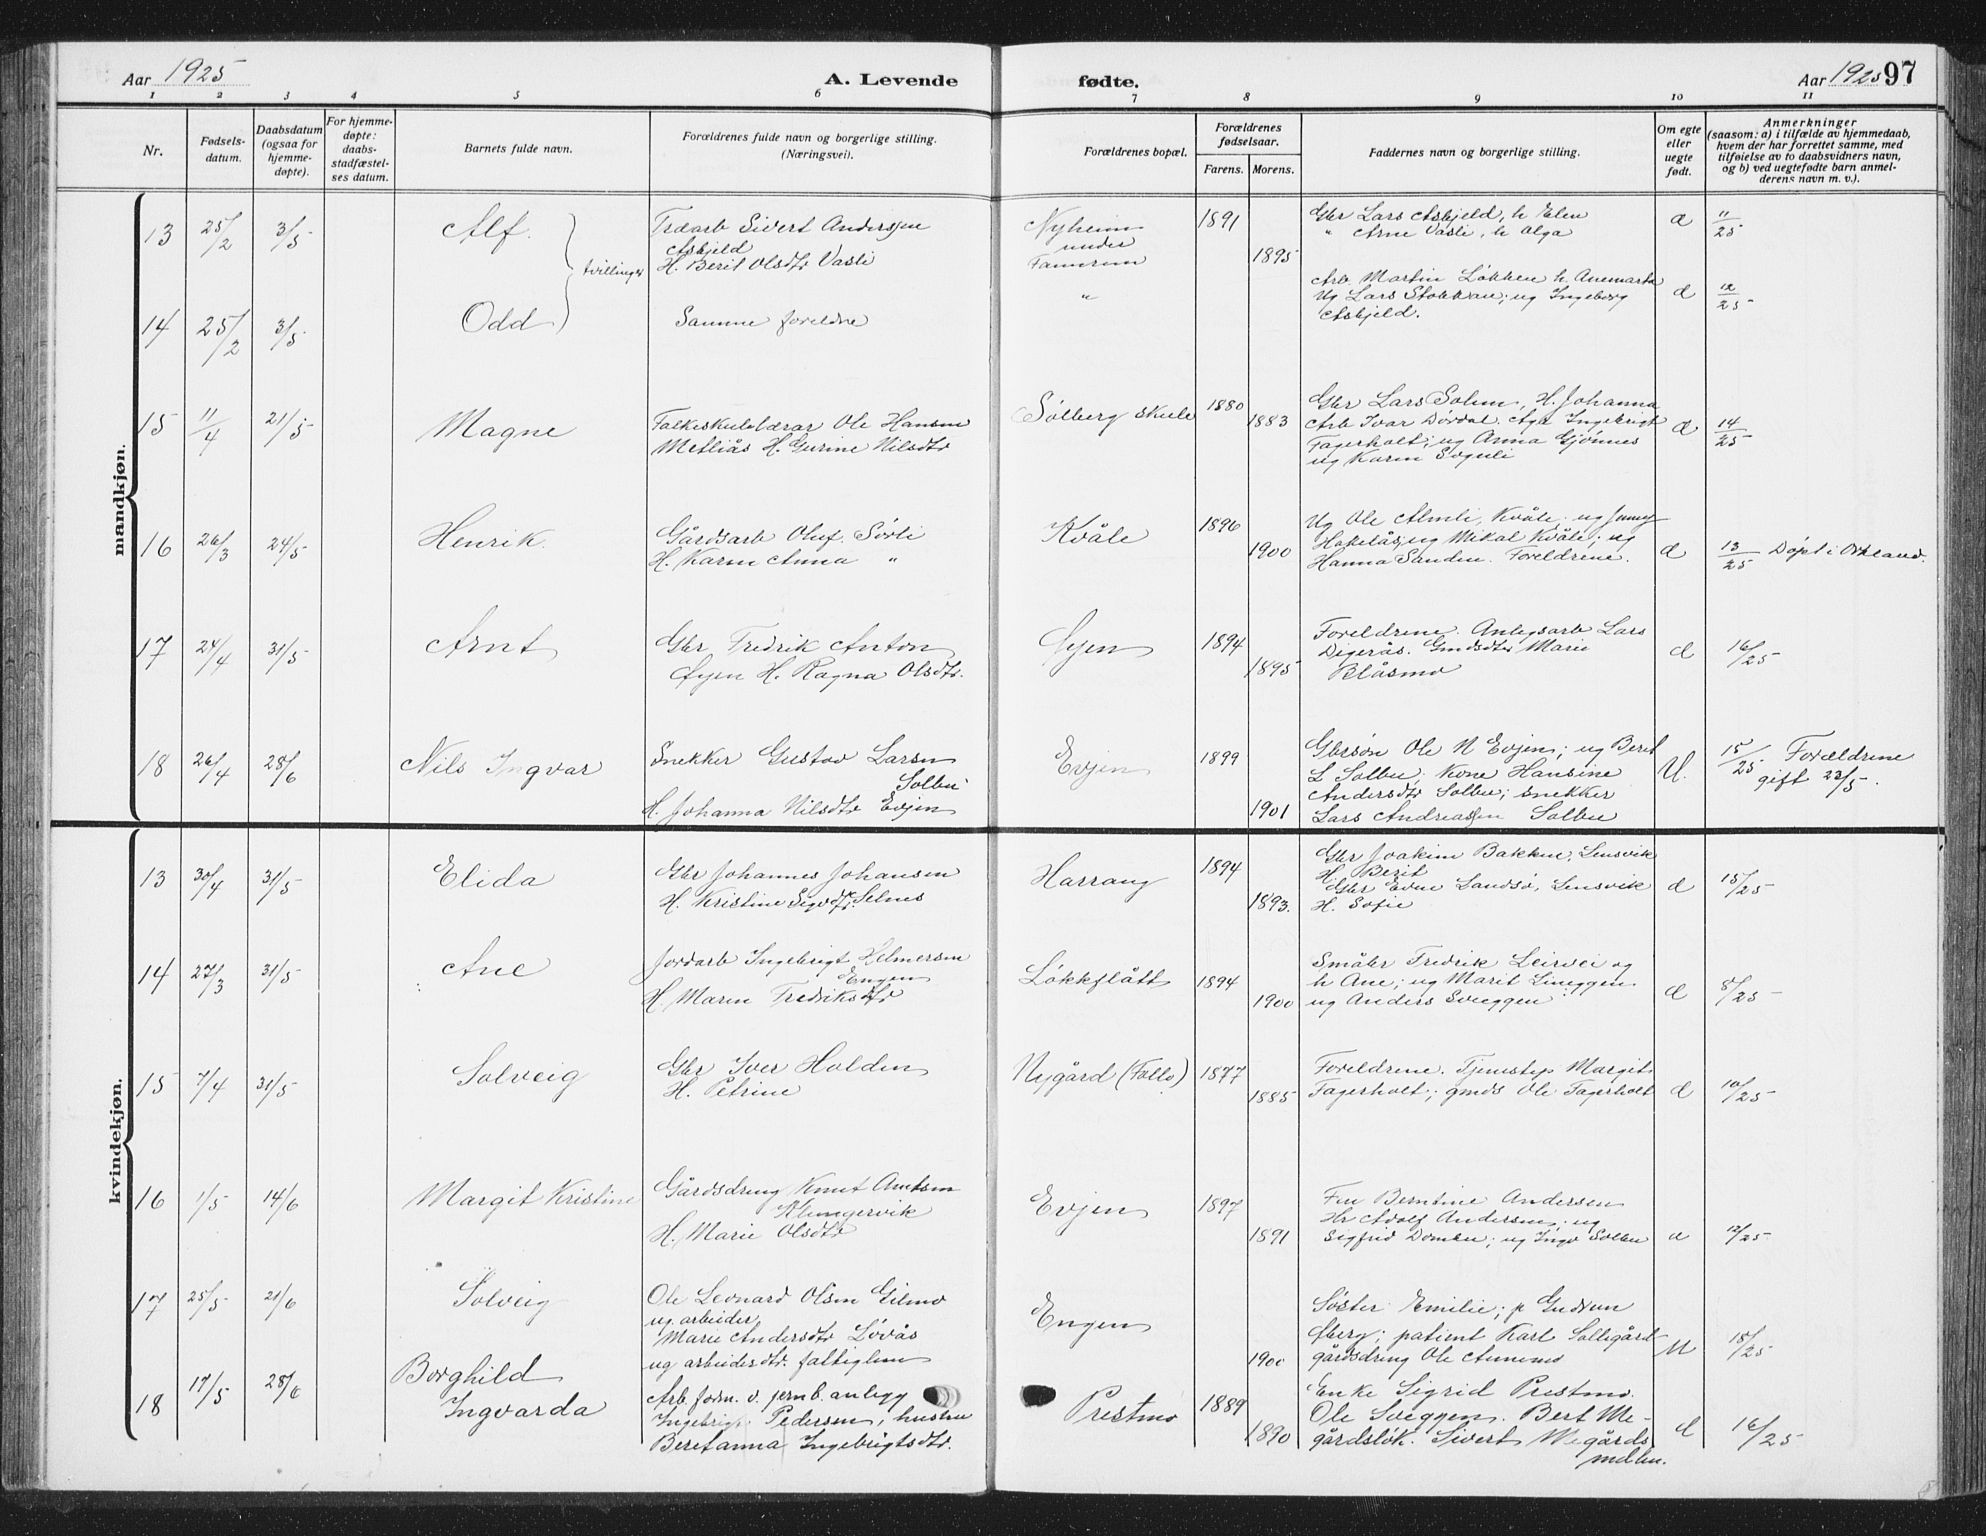 Aar 1925 A. Levende fødte. Aar 1925 97
1 2 3 4 5 6 7 8 9 10 11
Nr.
Fødsels-
datum.
Daabsdatum
(ogsaa for
hjemme-
døpte).
For hjemme-
døpte:
daabs-
stadfæstel-
ses datum.
Barnets fulde navn.
Forældrenes fulde navn og borgerlige stilling.
(Næringsvei).
Forældrenes bopæl.
Forældrenes
fødselsaar.
Farens. Morens.
Faddernes navn og borgerlige stilling.
Om egte
eller
uegte
født.
Anmerkninger
(saasom: a) i tilfælde av hjemmedaab,
hvem der har forrettet samme, med
tilføielse av to daabsvidners navn,
og b) ved uegtefødte barn anmel-
derens navn m. v.).
mandkjøn.
13 25/2 3/5 Alf. tvillinger
Træarb Sivert Anderssen
Asbjeld
H. Berit Olsdtr Vasli
Nyheim
under
Fannrem
1891 1895
Gbr Lars Asbjeld, h Elen
" Arne Vasli, h Olga
a 11/25
14 25/2 3/5 Odd
Samme foreldre
"
Arb Martin Løkken h. Anemarta
Ug Lars Stokkan; ug Ingeborg
Asbjeld.
a 12/25
15 11/4 21/5 Magne
Folkeskulelærar Ole Hansen
Metliås H. Gurine Nilsdtr
Sølberg skule
1880 1883
Gbr Lars Solem, H. Johanna
Arb Ivar Dørdal. Aga Ingebrigt
Fagerholt; ug Anna Gjønnes
ug Karen Soguli
a 14/25
16 26/3 24/5 Henrik.
Gårdsarb Oluf Sørli
H. Karen Anna "
Kvåle
1896 1900
Ug Ole Almli, Kvåle; ug Jenny
Hakelås; ug Mikal Kvåle; ug
Hanna Sanden. Foreldrene.
a 13/25 Døpt i Orkland.
17 24/4 31/5 Arnt
Gbr Fredrik Anton
Øyen H. Ragna Olsdtr.
Øyen
1894 1895
Foreldrene. Anlegsarb Lars
Digerås. Gmdsdtr Marie
Blåsmo
a 16/25
18 26/4 28/6 Nils Ingvar
Snekker Gustav Larsen
Solbu
H. Johanna Nilsdtr Evjen
Evjen
1899 1901
Gbrsøn Ole N Evjen; ug Berit
L Solbu; Kone Hansine
Andersdtr Solbu; snekker
Lars Andreassen Solbu
U. 15/25 Foreldrene
gift 23/5.
kvindekjøn.
13 30/4 31/5 Elida
Gbr Johannes Johansen
H. Kristine Sigvdtr. Selnes
Harrang
1894 1893.
Gbr Joakim Bakken, Lensvik
H. Berit
Gbr Even Landsø, Lensvik
H. Sofie
a 15/25
14 27/3 31/5 Ane
Jordarb Ingebrigt Helmersen
Engen
H. Maren Fredriksdtr
Løkkflått
1894 1900
Småbr Fredrik Leirvei og
h Ane; ug Marit Lineggen
ug Anders Sveggen
a 8/25
15 7/4 31/5 Solveig
Gbr Iver Holden
H. Petrine
Nygård (Follo)
1877 1885
Foreldrene. Tjenstep Margit
Fagerholt; gmds Ole Fagerholt
a 10/25
16 1/5 14/6 Margit Kristine
Gårdsdreng Knut Arntsen
Klungervik
H. Marie Olsdtr
Evjen
1897 1891
Fru Berntine Andersen
Hr Adolf Andersen; ug
Sigfrid Domben; ug Inga Solbu
a 12/25
17 25/5 21/6 Solveig
Ole Leonard Olsen Gilmo
ug. arbeider
Marie Andersdtr Løvås
ug arbeidersdtr. faltiglem
Engen
1900
Søster Emilie; p Gudrun
Øberg; patient Karl Sollegård
gårdsdreng Ole Annemo
U 15/25
18 17/5 28/6 Borghild
Ingvarda
Arb. form. v. jernb. anlegg
Ingebrigt Pedersen, hustru
Beretanna Ingebrigtsdtr.
Prestmo
1889 1890
Enke Sigrid Prestmo.
Ole Sveggen. Berit Me-
gårdsløk. Sivert Megårds
mellen.
a 16/25